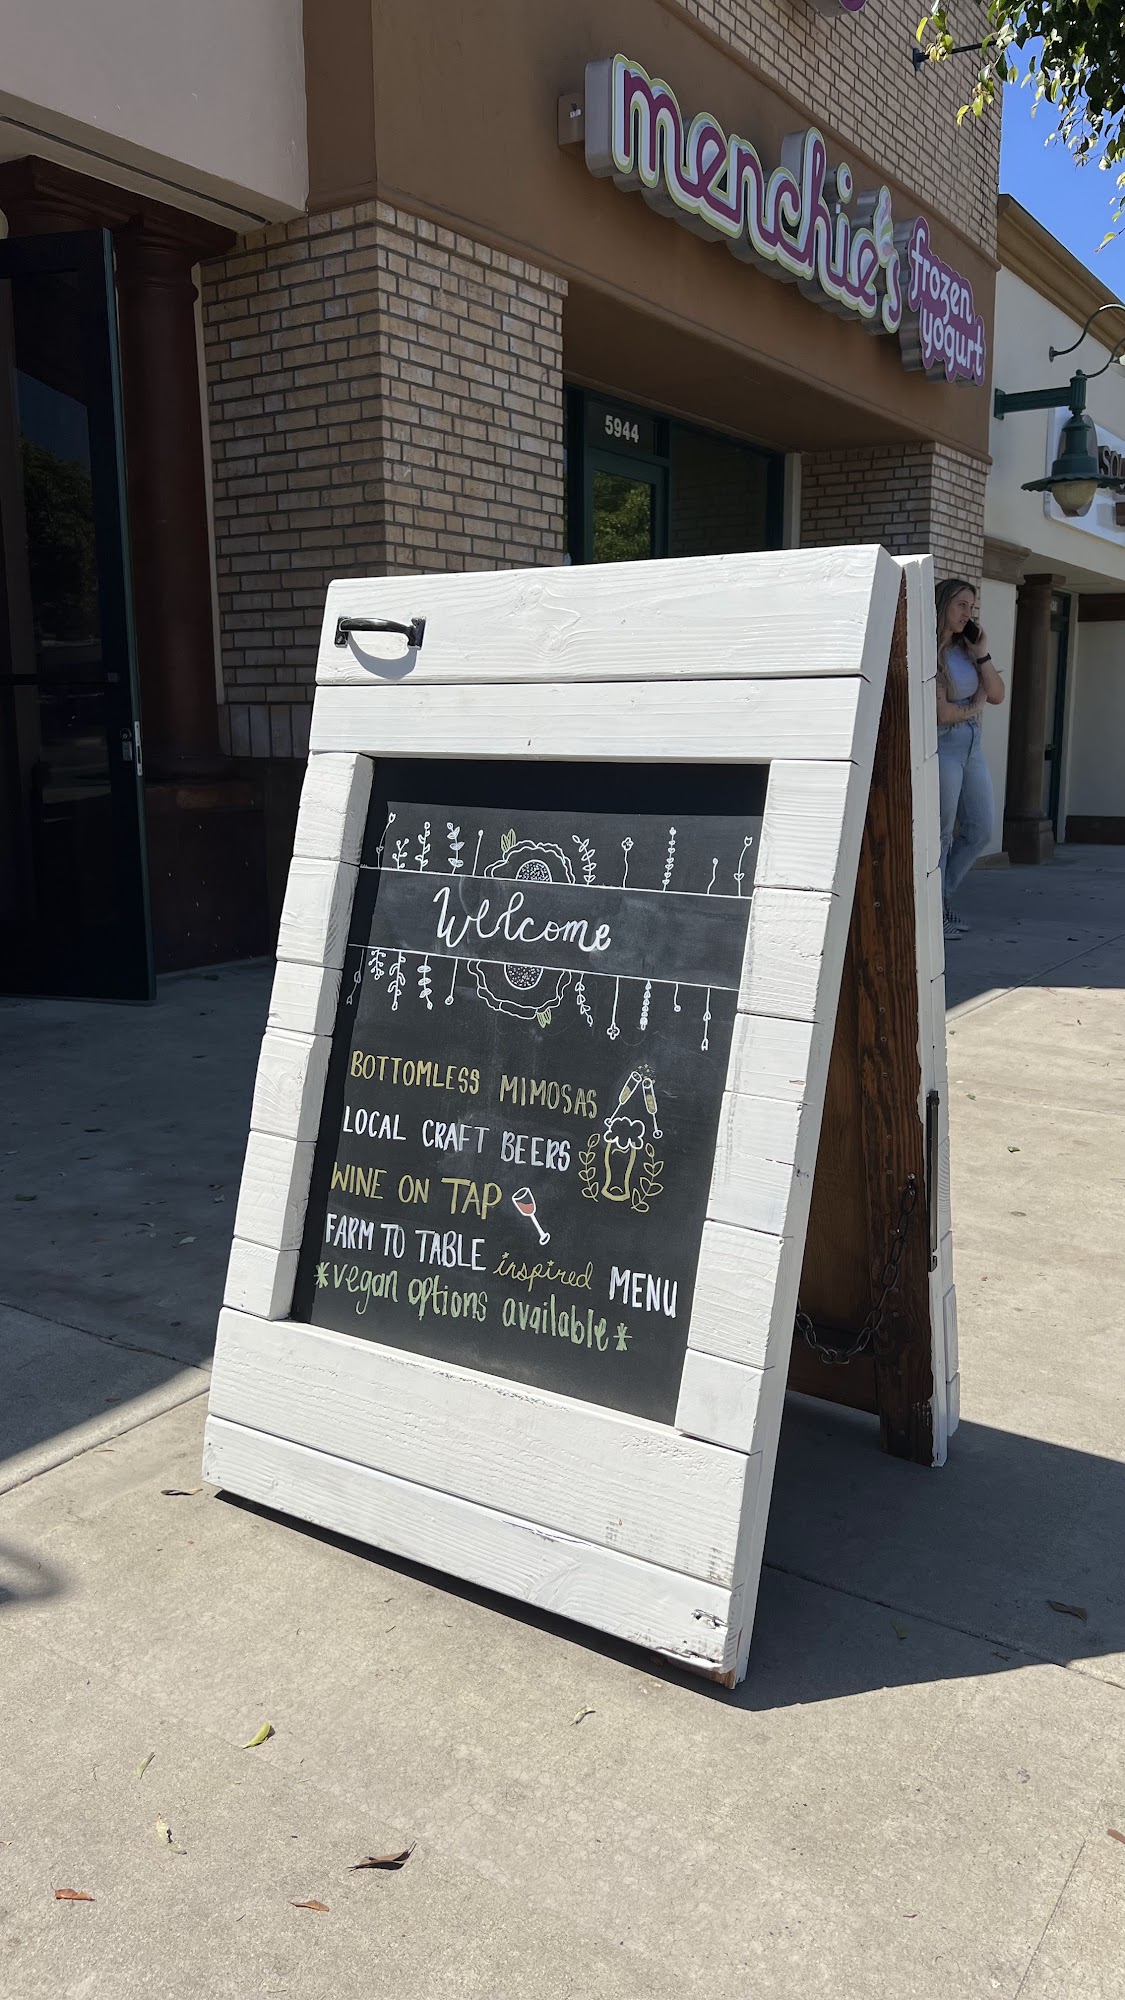 menchie's
frozen
yogurt
5944
Welcome
BOTTOMLESS MIMOSAS
LOCAL CRAFT BEERS
WINE ON TAP
FARM TO TABLE inspired MENU
*vegan options available*